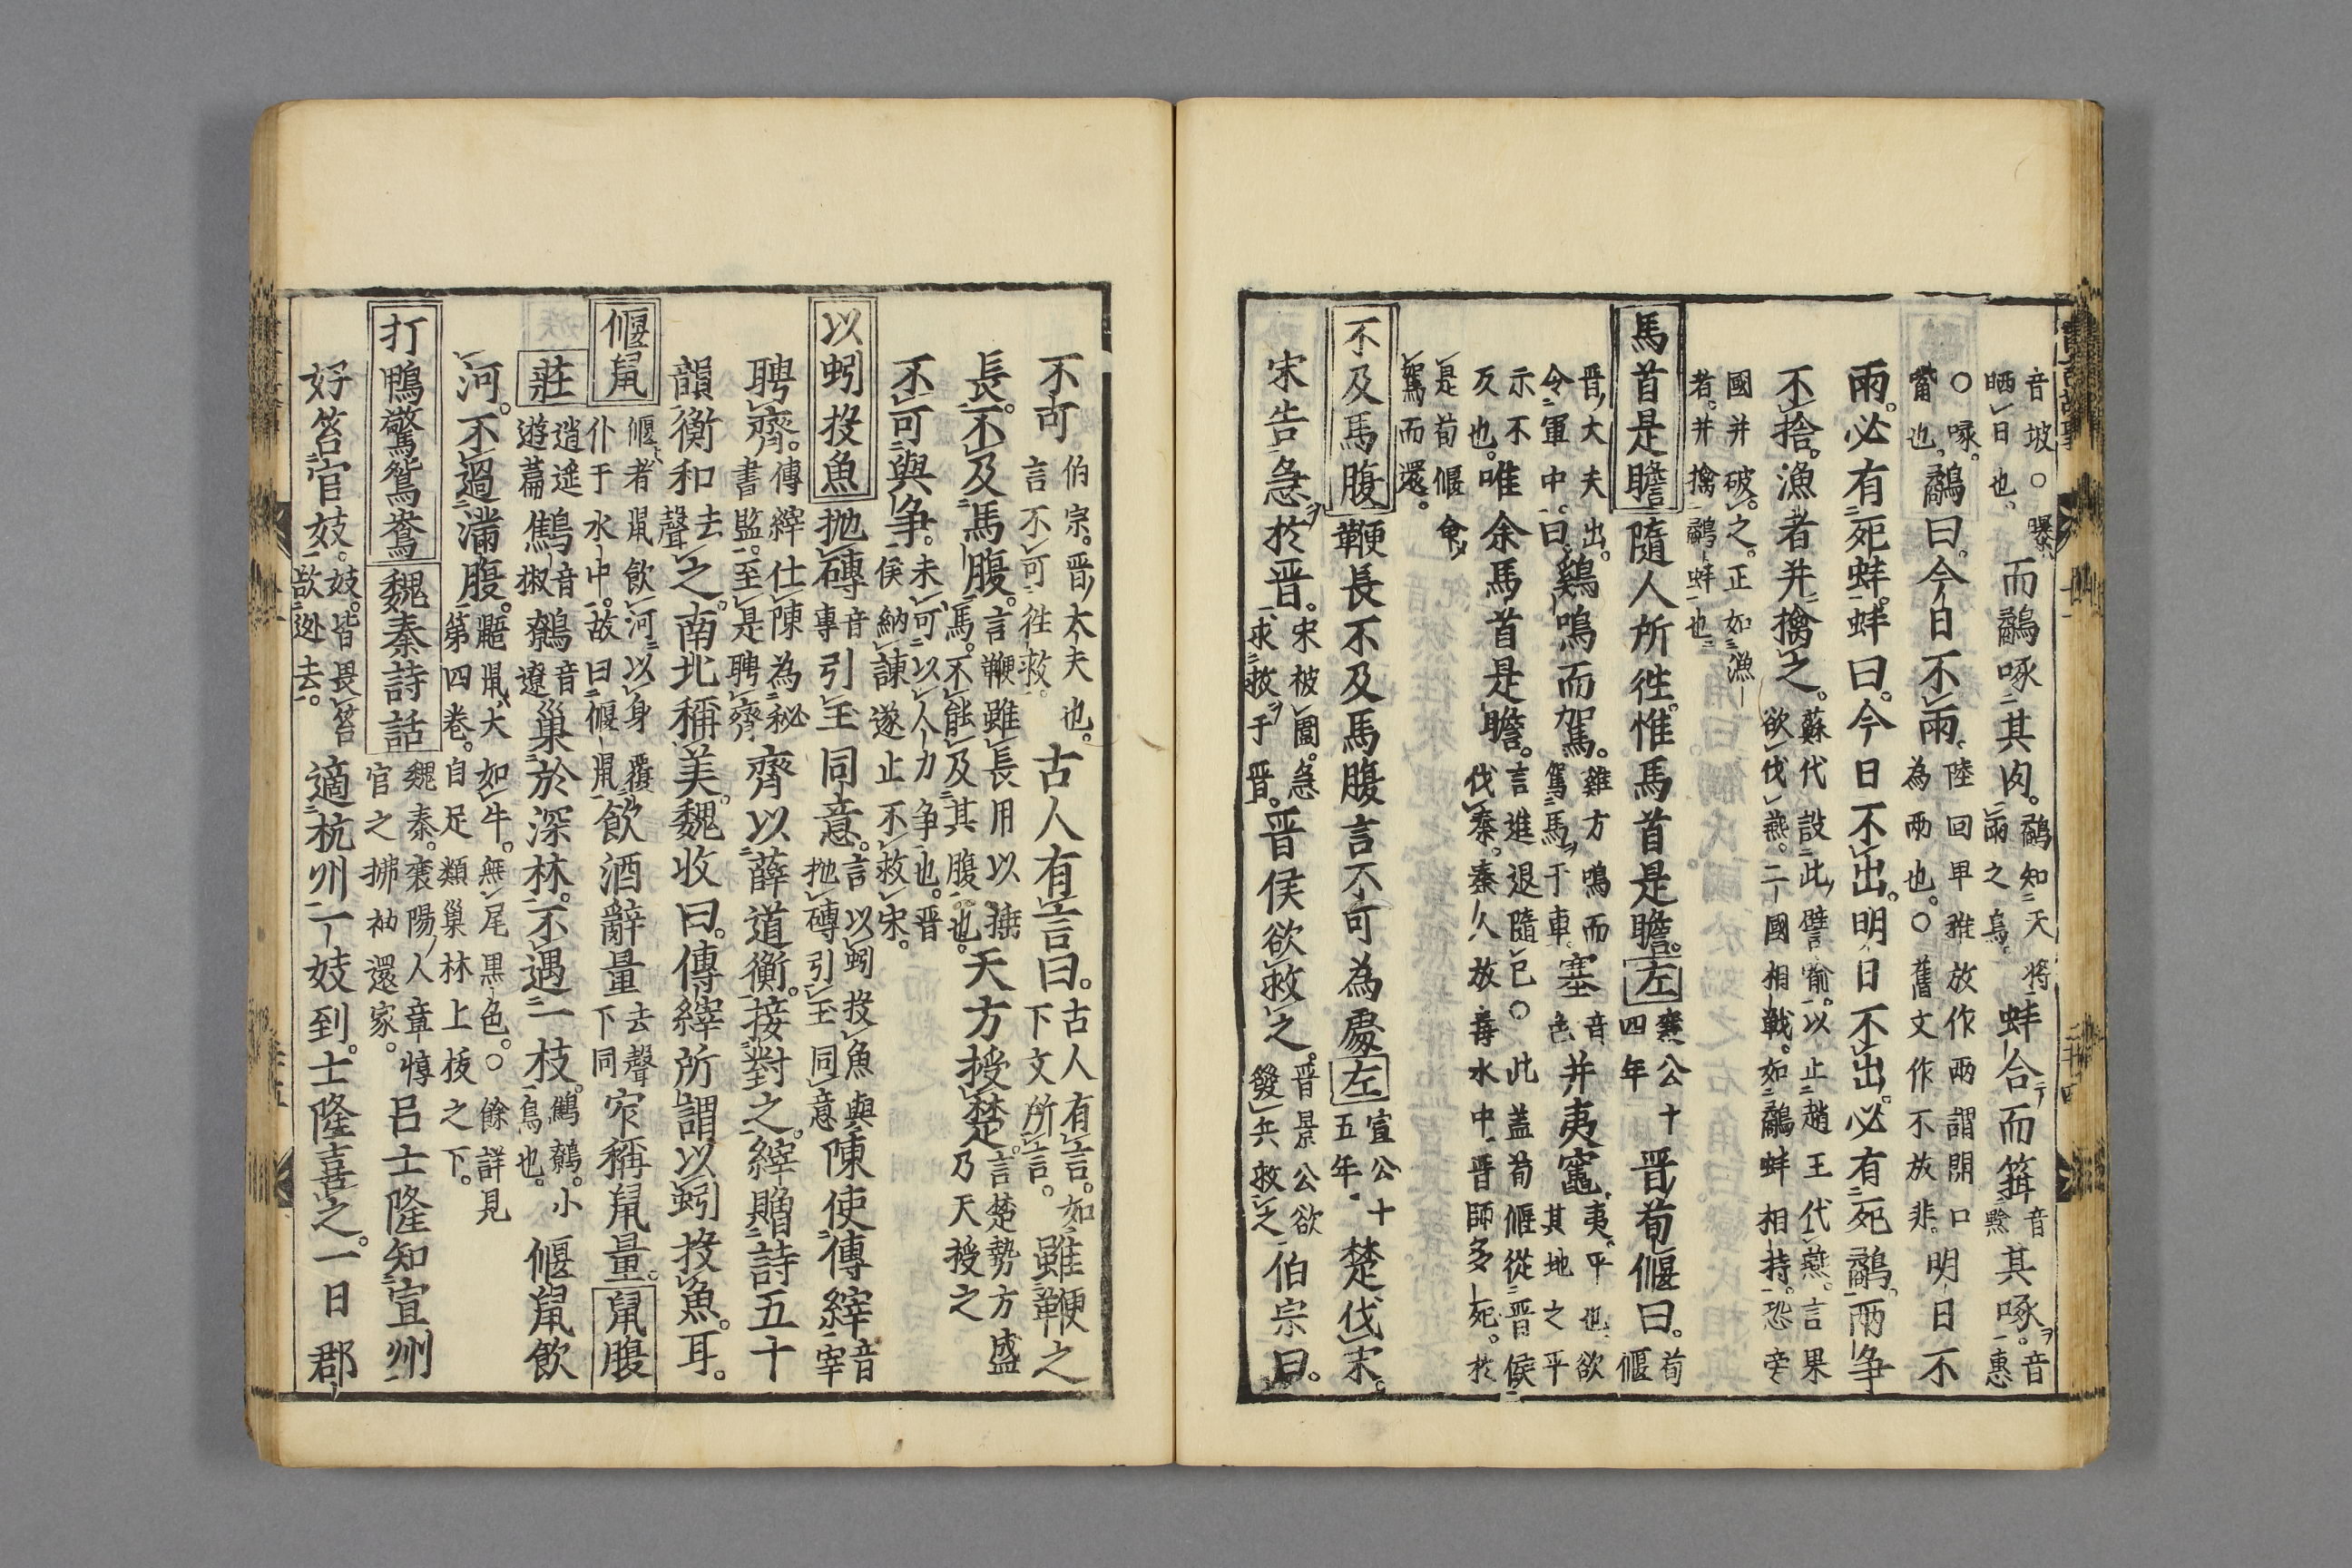 音坡○曝
晒日也
而鷸啄其肉
鷸知天將
雨之烏
蚌合而箝
音
其啄
音
惠
○啄
觜也
鷸曰今日不雨
陸回早雅放作兩謂開口
為兩也○舊文作不放非
明日不
雨必有死蚌蚌曰今日不出明日不出必有死鷸兩争
不捨漁者并擒之
蘇代設此譬喻以止趙王代燕言果
欲伐燕二國相戰如鷸蚌相持恐旁
國并破之正如漁
者并擒鷸蚌也
馬首是瞻
隨人所徃惟馬首是瞻
左
襄公十
四年
晋荀偃曰
荀
偃
晋大夫出
令軍中曰
鷄鳴而駕
雞方鳴而
駕馬于車
塞
音
色
井夷竈
夷平也欲
其地之平
示不
反也
唯余馬首是瞻
言進退隨已○此蓋荀偃從晋侯
伐秦秦人放毒水中晋師多死於
是荀偃命
駕而還
不及馬腹
鞭長不及馬腹言不可為處
左
宣公十
五年
楚伐宋
宋告急於晋
宋被圍急
求救于晋
晋侯欲救之
晋景公欲
發兵救之
伯宗曰
不可
伯宗晋大夫也
言不可徃救
古人有言曰
古人有言如
下文所言
雖鞭之
長不及馬腹
言鞭雖長用以撻
馬不能及其腹也
天方授楚
言楚勢方盛
乃天授之
不可與争
未可以人力争也晋
侯納諫遂止不救宋
以蚓投魚
抛磚
音
專
引玉同意
言以蚓投魚與
抛磚引玉同意
陳使傅縡
音
宰
聘齊
傅縡仕陳為秘
書監至是聘齊
齊以薛道衡接對之縡贈詩五十
韻衡和
去
聲
之南北稱美魏收曰傅縡所謂以蚓投魚耳
偃鼠
偃者鼠飲河以身覆
仆于水中故曰偃鼠
飲酒辭量
去聲
下同
窄稱鼠量
鼠腹
莊
逍遙
遊篇
鷦
音
椒
鷯
音
遼
巢於深林不過一枝
鷦鷯小
鳥也
偃鼠飲
河不過滿腹
鼴鼠大如牛無尾黒色○餘詳見
第四卷自足類巢林上枝之下
打鴨驚鴛鴦
魏泰詩話
魏泰襄陽人章惇
官之拂袖還家
呂士隆知宣州
好笞官妓
妓皆畏笞
故逊去
適杭州一妓到士隆喜之一日郡